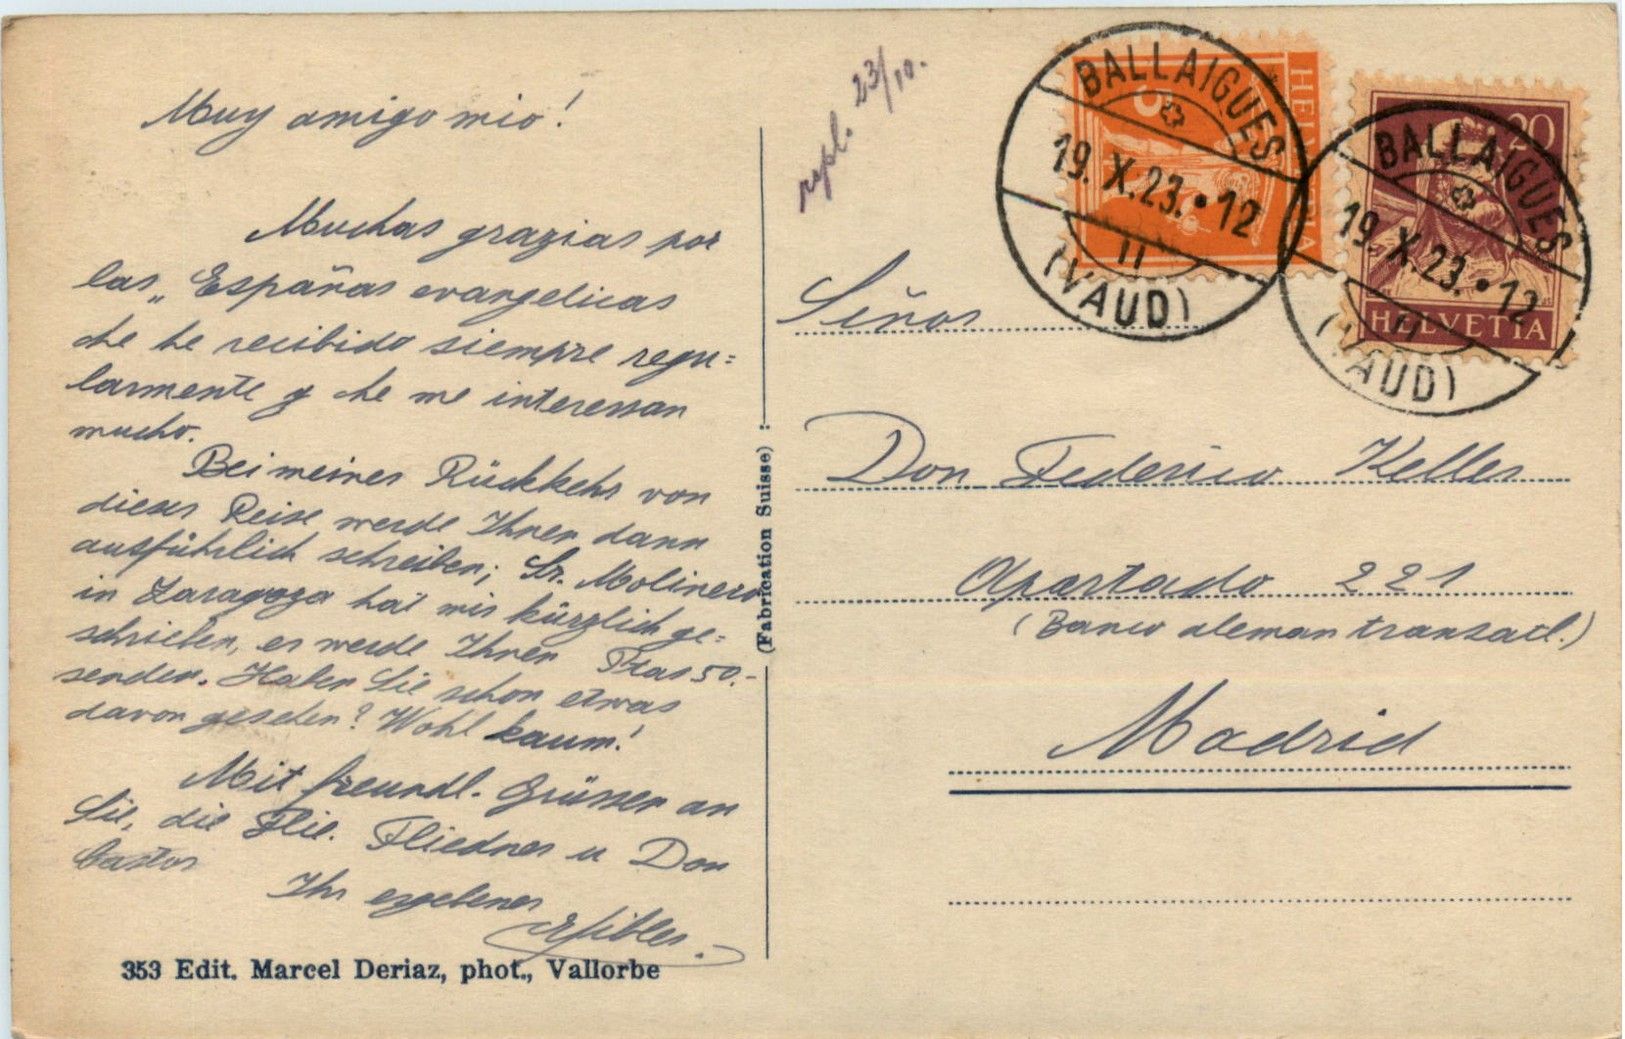 Muy amigo mio!
Muchas grazias por
las „Españas evangelicas
che he recibido siempre regu=
larmente y che me interessan
mucho.
Bei meiner Rückkehr von
dieser Reise werde Ihnen dann
ausführlich schreiben; Sr. Molinero
in Zaragoza hat mir kürzlich ge=
schrieben, er werde Ihnen Ptas 50.-
senden. Haben Sie schon etwas
davon gesehen? Wohl kaum!
Mit freundl. Grüssen an
Sie, die Flie. Fliedner u Don
Castor
Ihr ergebener
353 Edit. Marcel Deriaz, phot., Vallorbe
(Fabrication Suisse)
repl. 23/10.
BALLAIGUES
19.X.23.•12
II
(VAUD)
5
HELVETIA
BALLAIGUES
19.X.23.•12
II
(VAUD)
20
HELVETIA
Señor
Don Federico Keller
Apartado 221
(Banco aleman transatl.)
Madrid